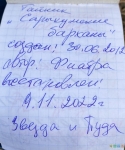 Тайник
"Сарыкумские
барханы"
создан! 30.06.2012
автр. Фиагра
восстановлен
9.11.2022г
Звезда и Буда